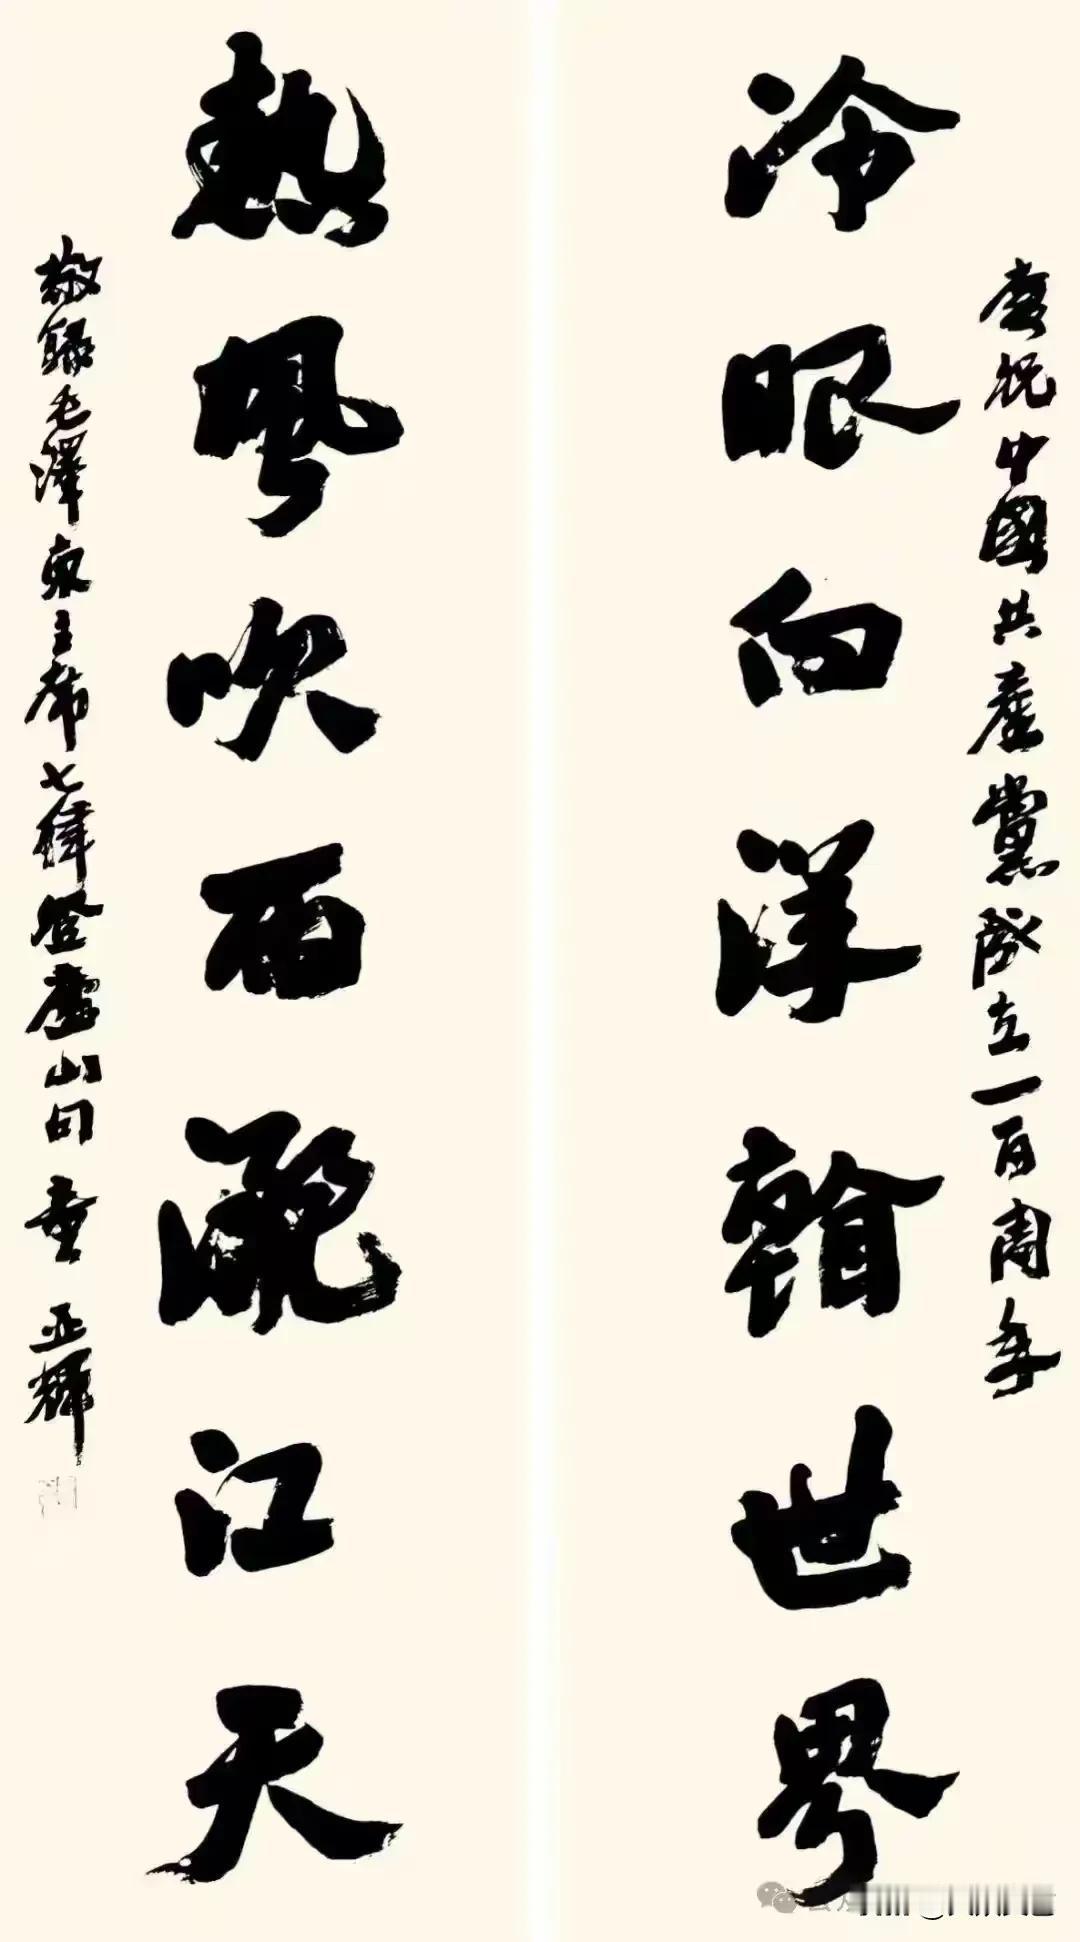 慶祝中國共產黨成立一百周年
冷眼向洋看世界
熱風吹雨灑江天
敬録毛澤東主席七律登廬山句 童亞輝